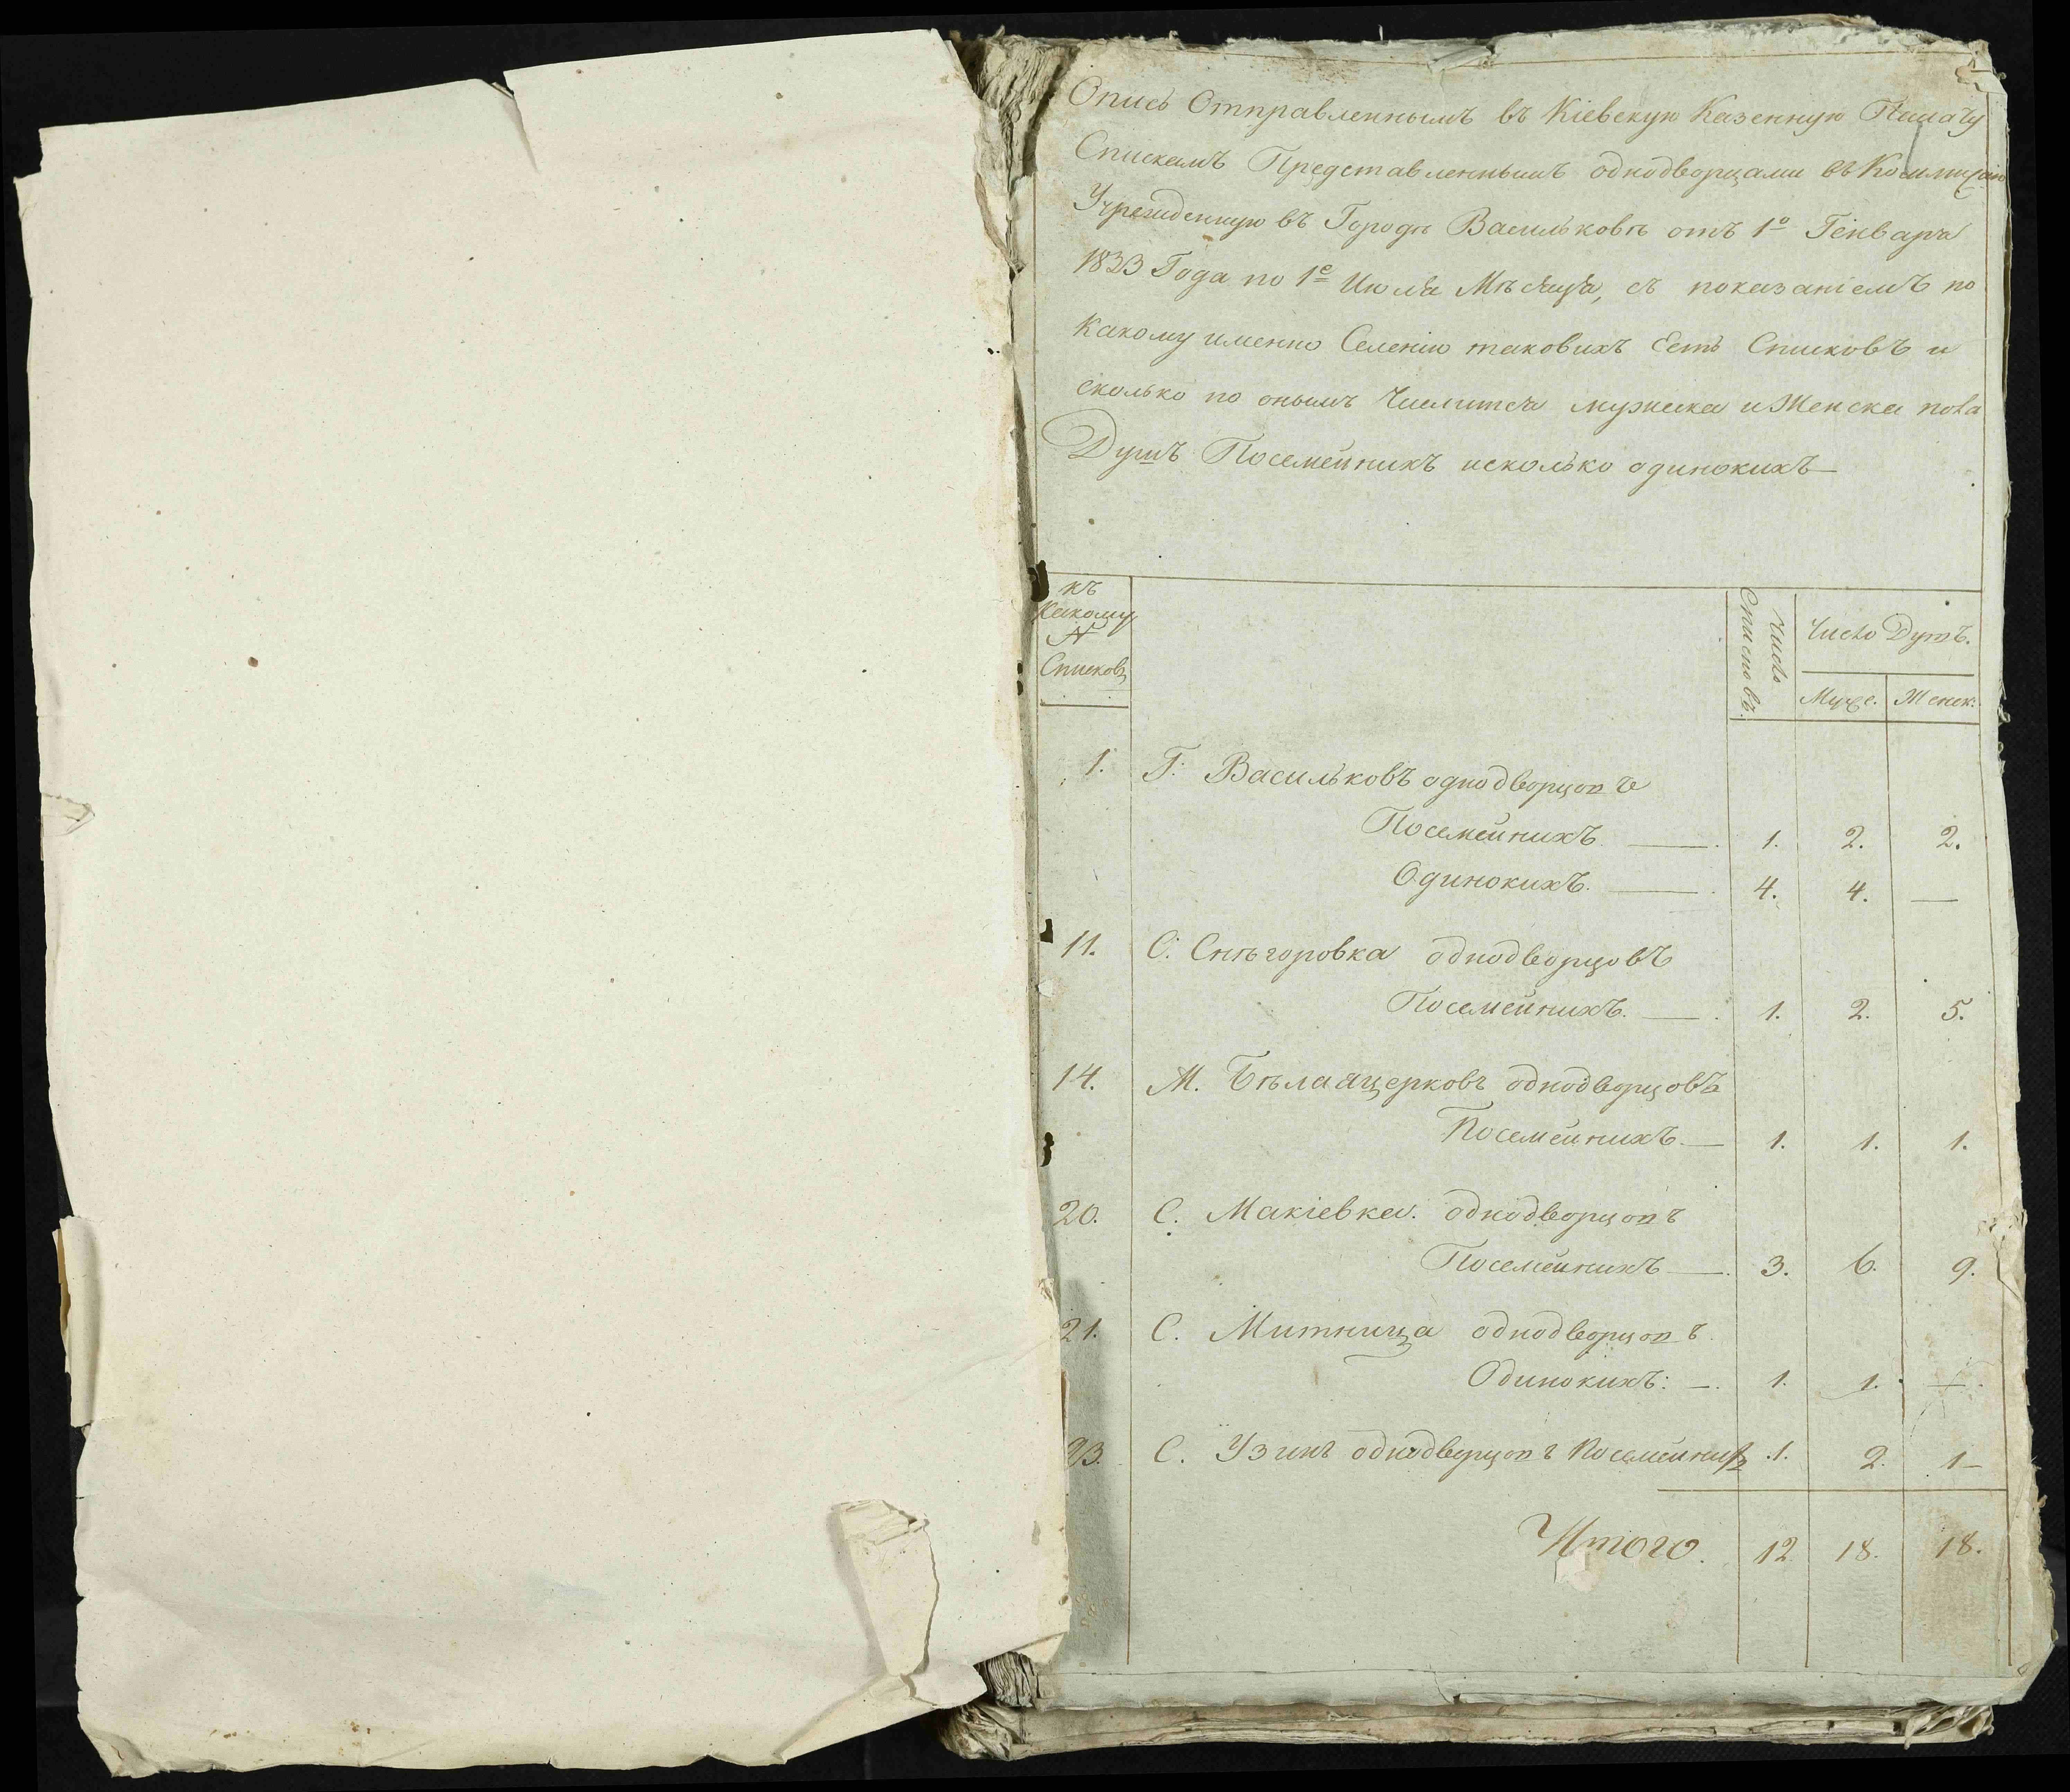 Опись Отправленнымъ въ Кіевскую Казенную Палату
Спискамъ Представленнымъ однодворцами въ Коммисію
Учрежденную въ Городѣ Васильковѣ отъ 1º Генваря
1833 Года по 1е Июля Мѣсяца, съ показаніемъ по
Какому именно Селенію таковихъ Есть Списковъ и
сколько по онымъ Числится мужска и Женска пола
Душъ Посемейнихъ и сколько одинокихъ
къ Какому № Списковъ
Число Списковъ
Число Душъ.
Муже. Женск:
1. Г: Васильковъ однодворцовъ
Посемейнихъ 1. 2. 2.
Одинокихъ. 4. 4. —
11. С: Снѣгоровка однодворцовъ
Посемейнихъ. 1. 2. 5.
14. М. Бѣлаяцерковъ однодворцовъ
Посемейнихъ 1. 1. 1.
20. С. Макіевка. однодворцовъ
Посемейнихъ 3. 6. 9.
21. С. Митница однодворцовъ
Одинокихъ: 1. 1. —
23. С. Узинъ однодворцовъ Посемейних 1. 2. 1
Итого. 12 18. 18.